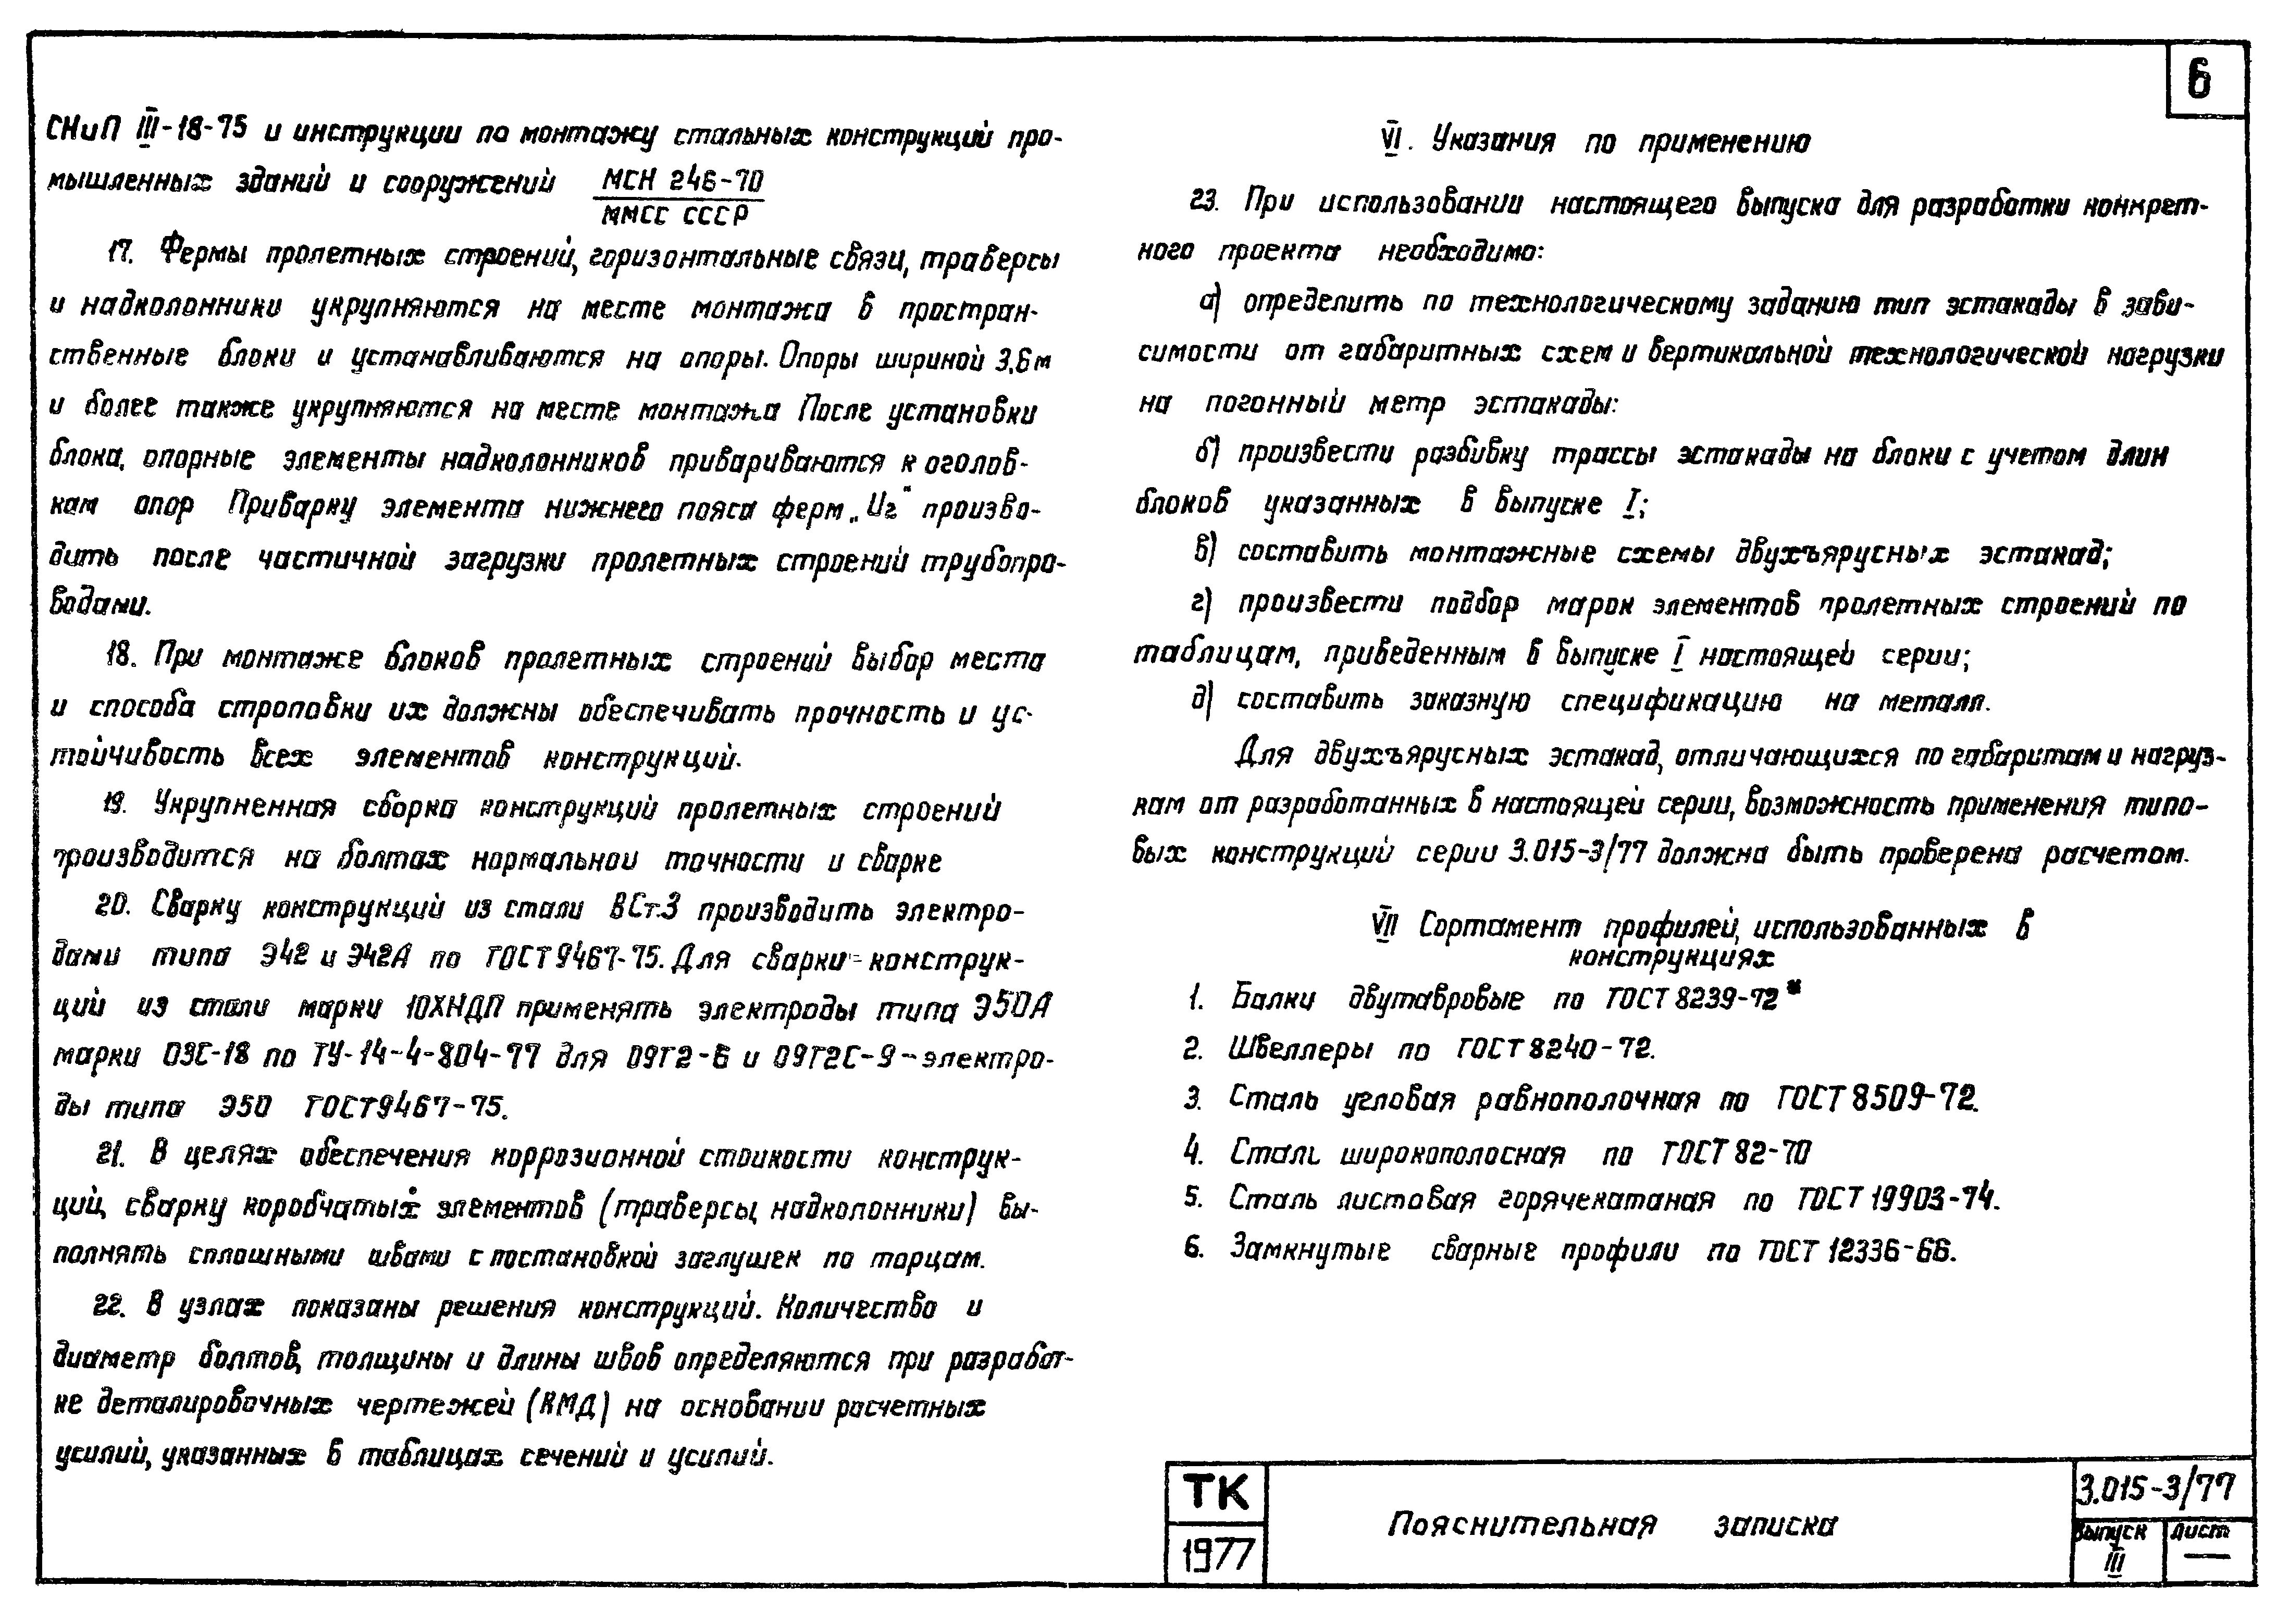 6
СНиП III-18-75 и инструкции по монтажу стальных конструкций про-
мышленных зданий и сооружений МСН 246-70
ММСС СССР
17. Фермы пролетных строений, горизонтальные связи, траверсы
и надколонники укрупняются на месте монтажа в простран-
ственные блоки и устанавливаются на опоры. Опоры шириной 3,6 м
и более также укрупняются на месте монтажа После установки
блока, опорные элементы надколонников привариваются к оголов-
кам опор Приварку элемента нижнего пояса ферм „Иг" произво-
дить после частичной загрузки пролетных строений трубопро-
водами.
18. При монтаже блоков пролетных строений выбор места
и способа строповки их должны обеспечивать прочность и ус-
тойчивость всех элементов конструкций.
19. Укрупненная сборка конструкций пролетных строений
производится на болтах нормальной точности и сварке
20. Сварку конструкций из стали ВСт.3 производить электро-
дами типа Э42 и Э42А по ГОСТ 9467-75. Для сварки конструк-
ций из стали марки 10ХНДП применять электроды типа Э50А
марки ОЗС-18 по ТУ-14-4-804-77 для 09Г2-6 и 09Г2С-9 - электро-
ды типа Э50 ГОСТ 9467-75.
21. В целях обеспечения коррозионной стойкости конструк-
ций, сварку коробчатых элементов (траверсы, надколонники) вы-
полнять сплошными швами с постановкой заглушек по торцам.
22. В узлах показаны решения конструкций. Количество и
диаметр болтов, толщины и длины швов определяются при разработ-
ке деталировочных чертежей (КМД) на основании расчетных
усилий, указанных в таблицах сечений и усилий.
VI. Указания по применению
23. При использовании настоящего выпуска для разработки конкрет-
ного проекта необходимо:
а) определить по технологическому заданию тип эстакады в зави-
симости от габаритных схем и вертикальной технологической нагрузки
на погонный метр эстакады:
б) произвести разбивку трассы эстакады на блоки с учетом длин
блоков указанных в выпуске I;
в) составить монтажные схемы двухъярусных эстакад;
г) произвести подбор марок элементов пролетных строений по
таблицам, приведенным в выпуске I настоящей серии;
д) составить заказную спецификацию на металл.
Для двухъярусных эстакад, отличающихся по габаритам и нагруз-
кам от разработанных в настоящей серии, возможность применения типо-
вых конструкций серии 3.015-3/77 должна быть проверена расчетом.
VII Сортамент профилей, использованных в
конструкциях
1. Балки двутавровые по ГОСТ 8239-72*
2. Швеллеры по ГОСТ 8240-72.
3. Сталь угловая равнополочная по ГОСТ 8509-72.
4. Сталь широкополосная по ГОСТ 82-70
5. Сталь листовая горячекатаная по ГОСТ 19903-74.
6. Замкнутые сварные профили по ГОСТ 12336-66.
ТК
1977
Пояснительная записка
3.015-3/77
Выпуск Лист
III —